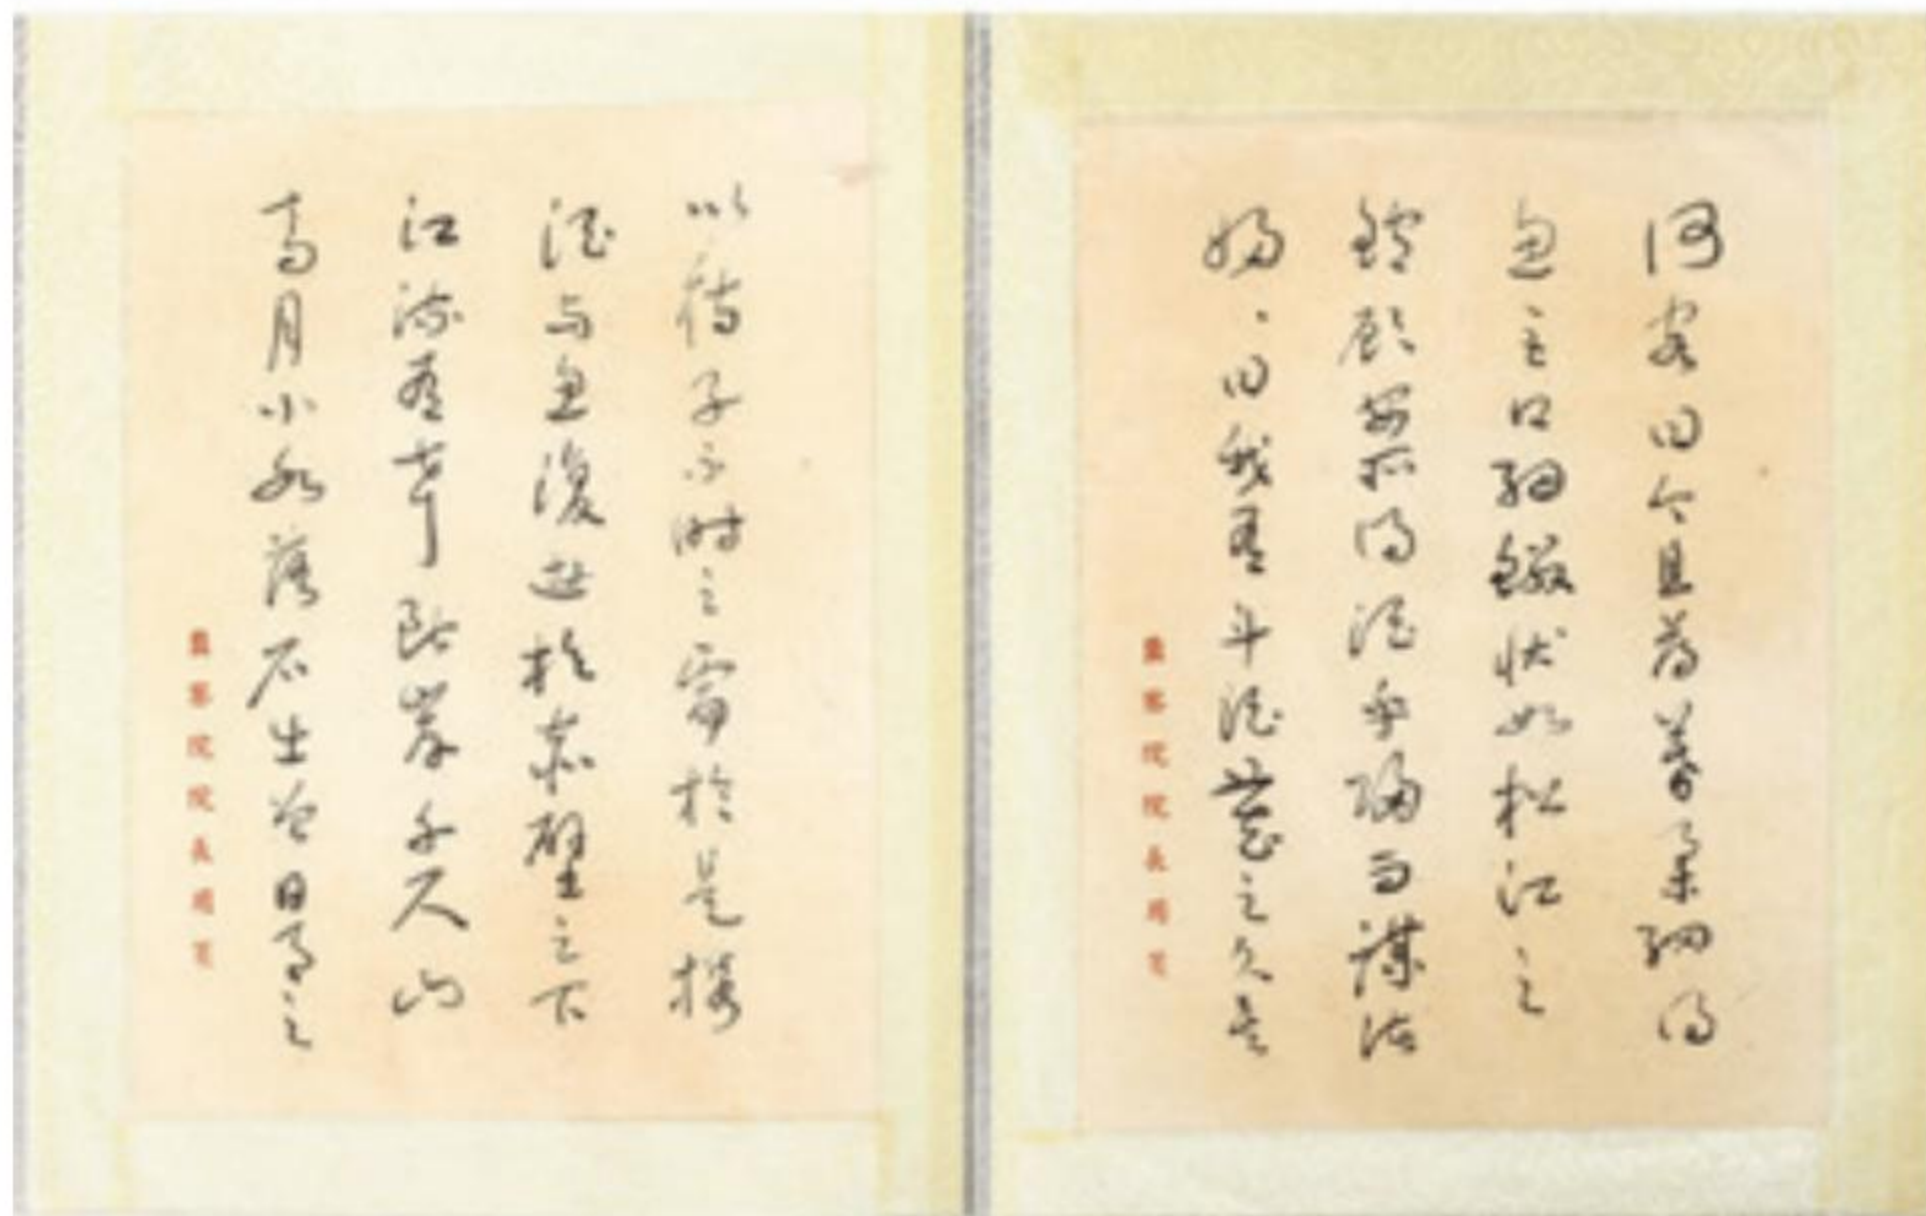 何客曰今且薄暮舉網得
魚巨口細鱗狀如松江之
鱸顧安所得酒乎歸而謀諸
婦、曰我有斗酒藏之久矣
監察院院長用箋
以待子不時之需於是携
酒与魚復遊於赤壁之下
江流有聲斷岸千尺山
高月小水落石出曾日之
監察院院長用箋